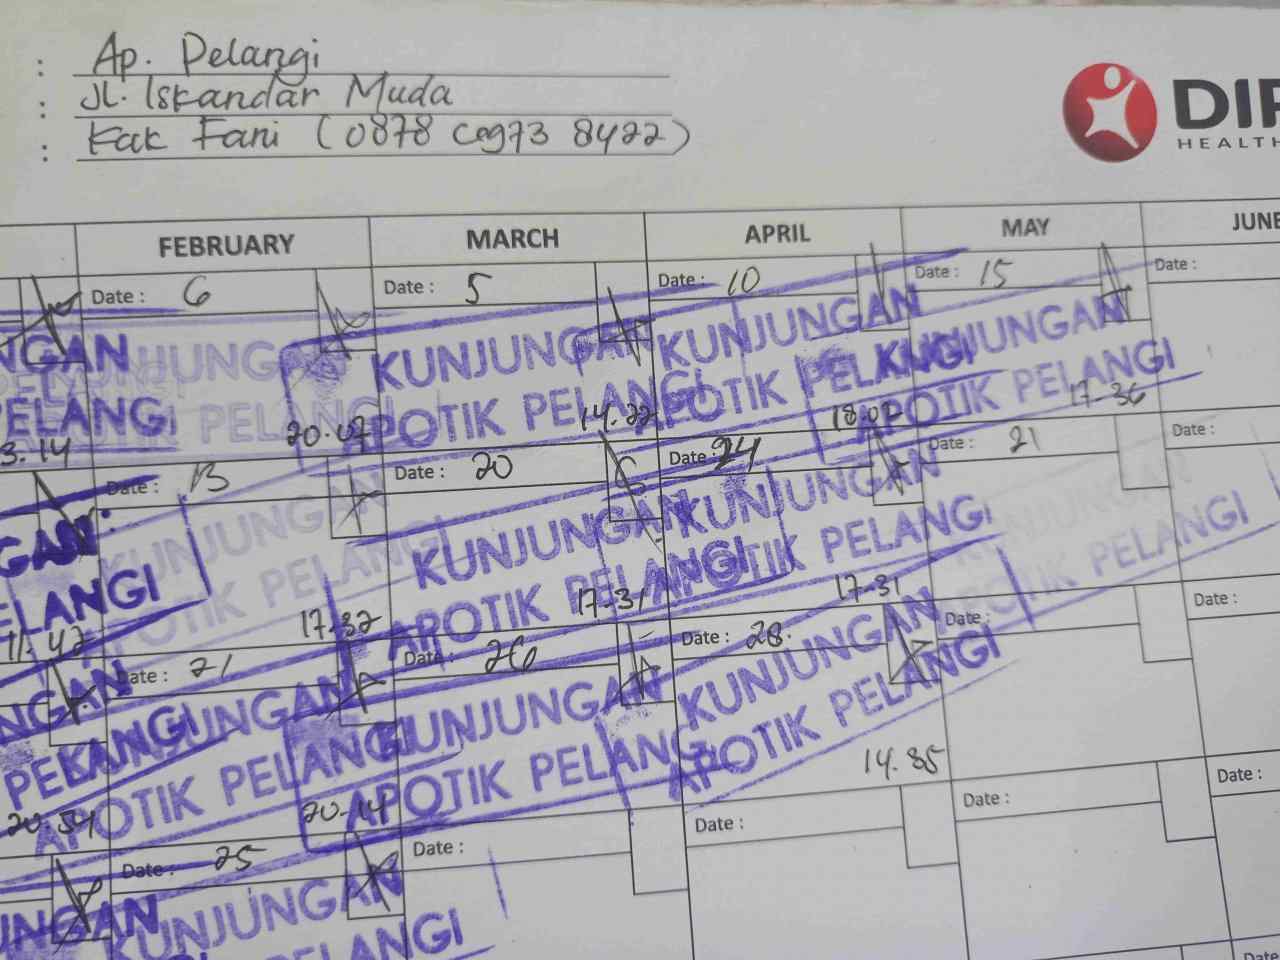 : Ap. Pelangi
: Jl. Iskandar Muda
: Kak Fani ( 0878 6973 8422 )
DIP
HEALTH
FEBRUARY MARCH APRIL MAY JUNE
Date : 6 Date : 5 Date : 10 Date : 15 Date :
NGAN KUNJUNGAN KUNJUNGAN KUNJUNGAN KUNJUNGAN
PELANGI APOTIK PELANGI APOTIK PELANGI APOTIK PELANGI APOTIK PELANGI
3.14 20.07 14.22 18.02 17-36
Date : 13 Date : 20 Date : 24 Date : 21 Date :
GAN KUNJUNGAN KUNJUNGAN KUNJUNGAN KUNJUNGAN
ELANGI APOTIK PELANGI APOTIK PELANGI APOTIK PELANGI APOTIK PELANGI
11.42 17-32 17-31 17-31
Date : 21 Date : 26 Date : 28 Date : Date :
NGAN KUNJUNGAN KUNJUNGAN KUNJUNGAN
PELANGI APOTIK PELANGI APOTIK PELANGI APOTIK PELANGI
20.54 20-14 14.35
Date : 25 Date : Date : Date : Date :
UNGAN KUNJUNGAN
PELANGI
Date